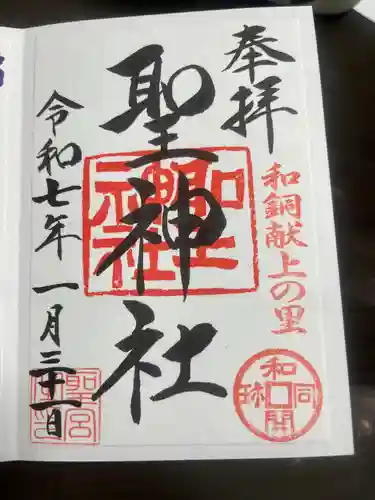 奉拝
和銅献上の里
和同開珎
聖神社
聖神社
令和七年一月三十一日